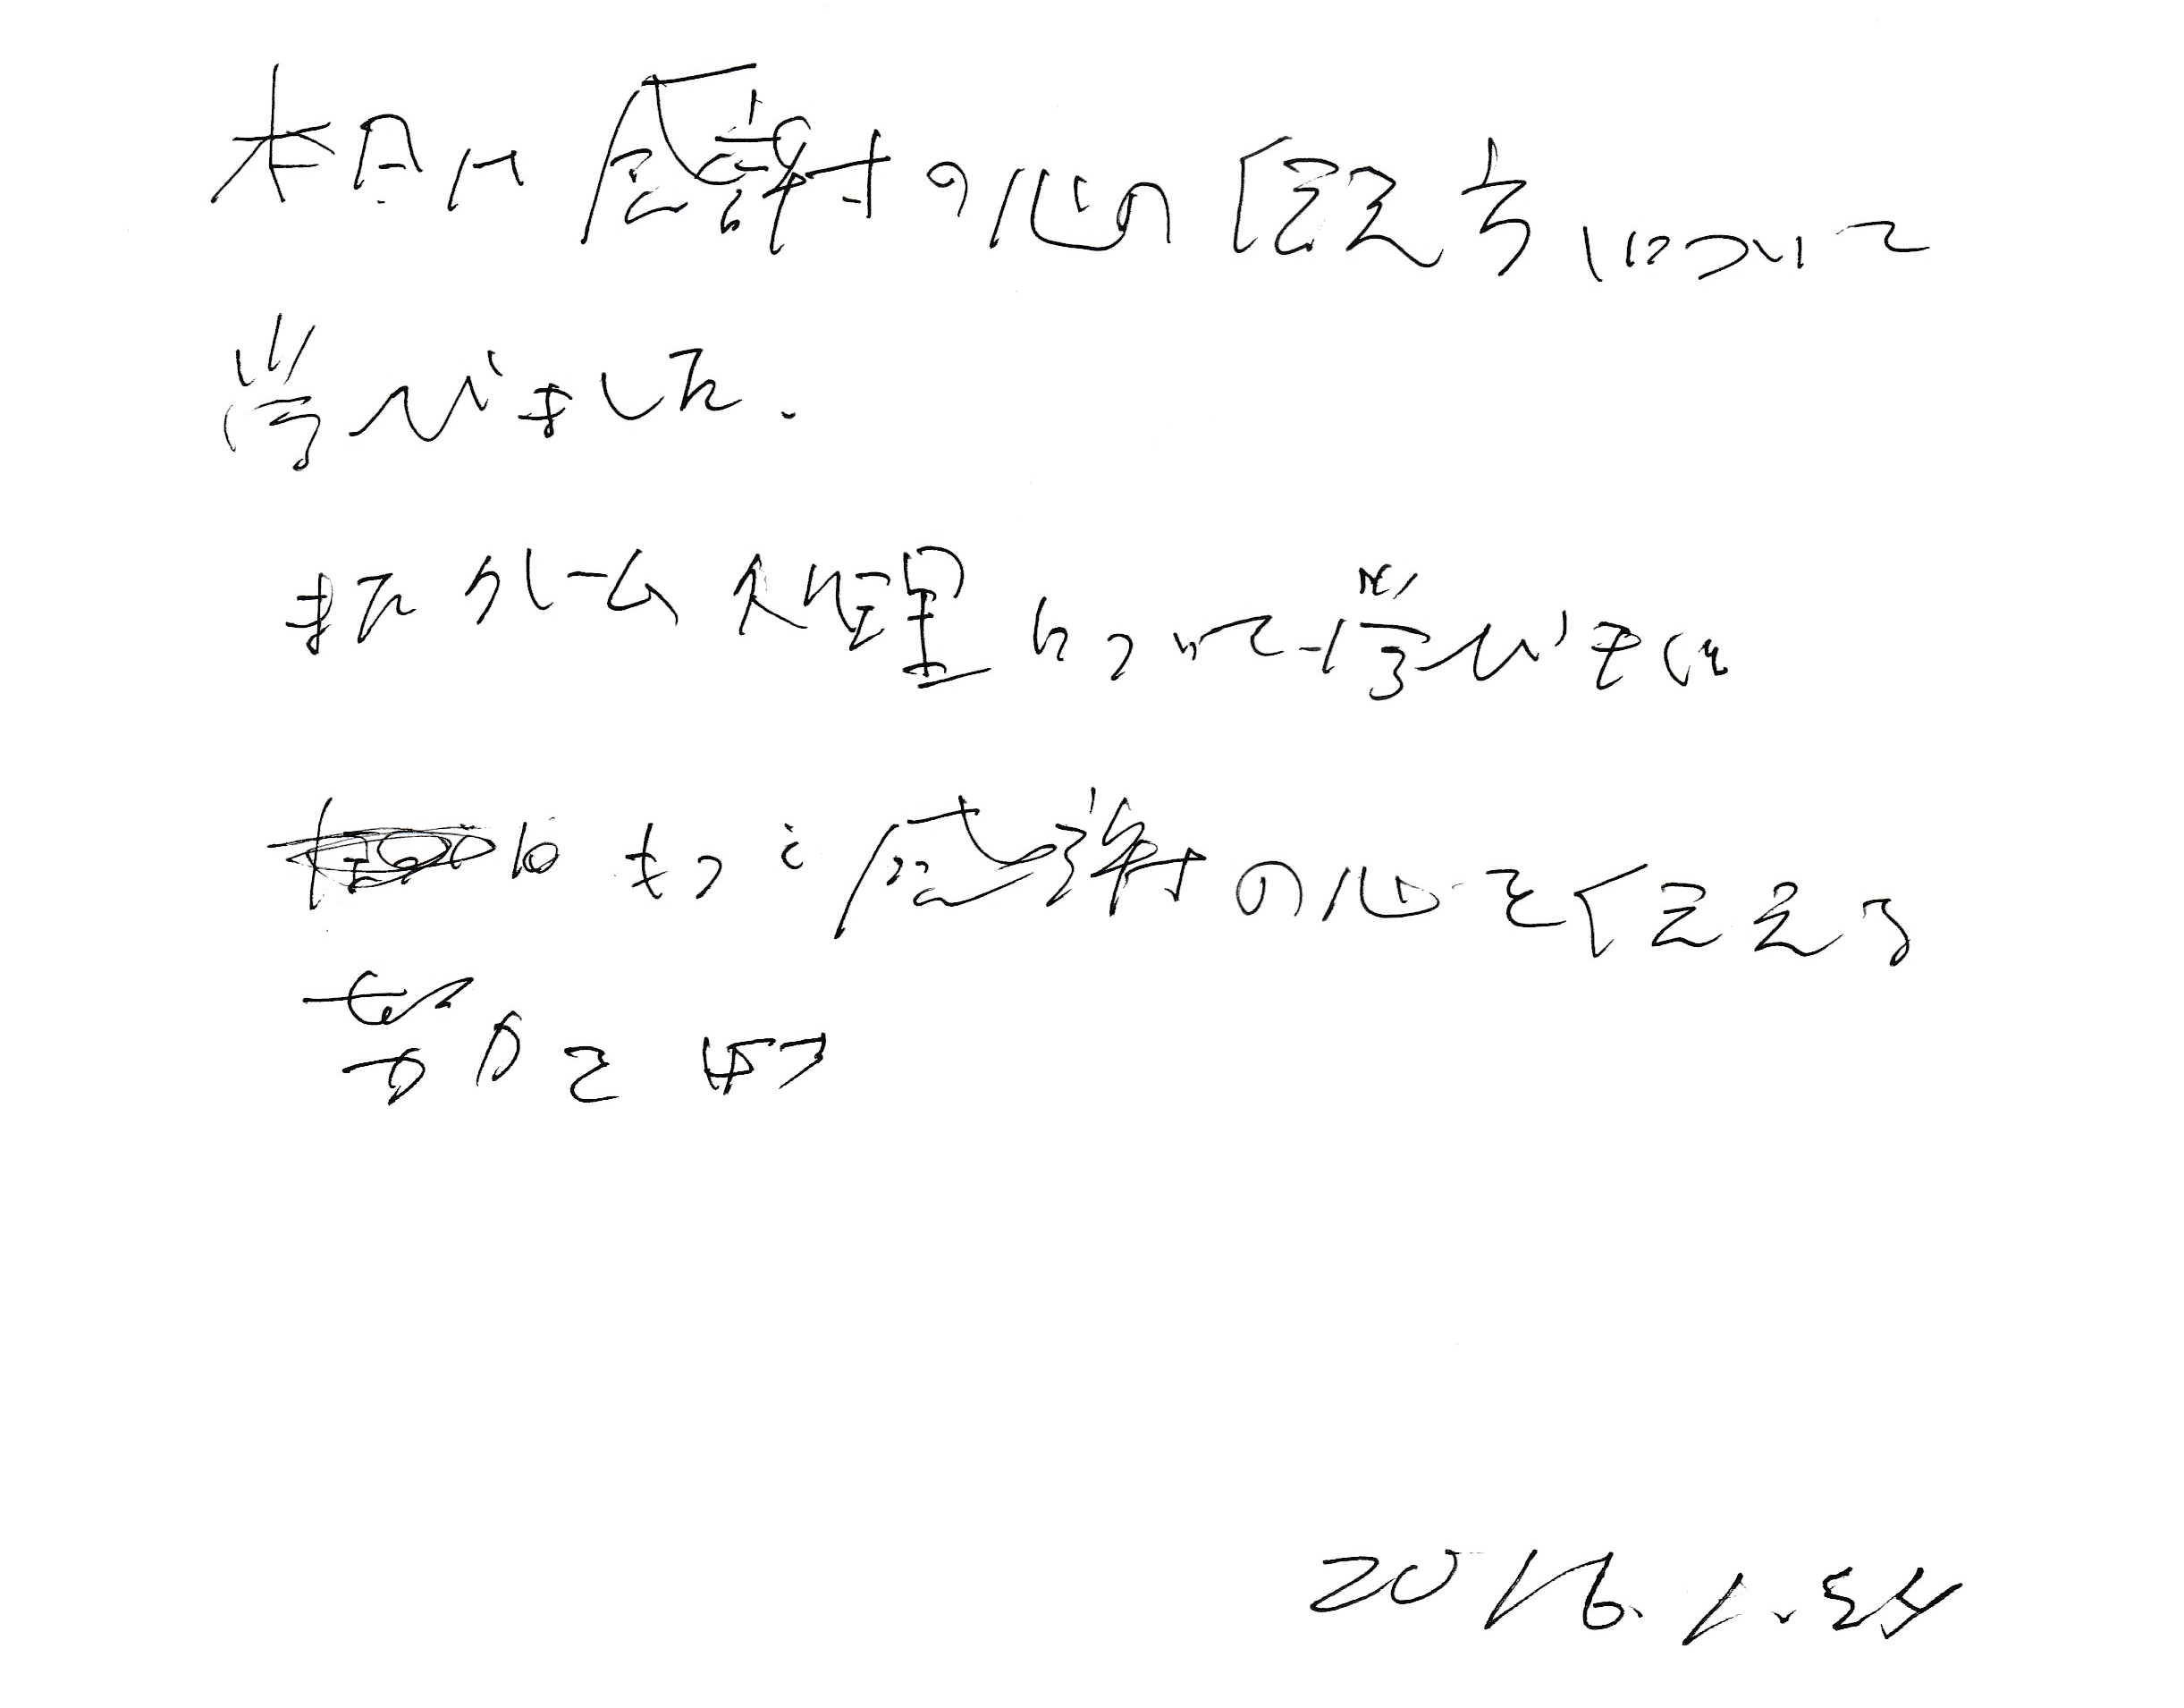 本日は感謝の心の伝え方について
学びました.
またクレーム処理について学びました
もっと感謝の心を伝える
努力を
2016.1.24